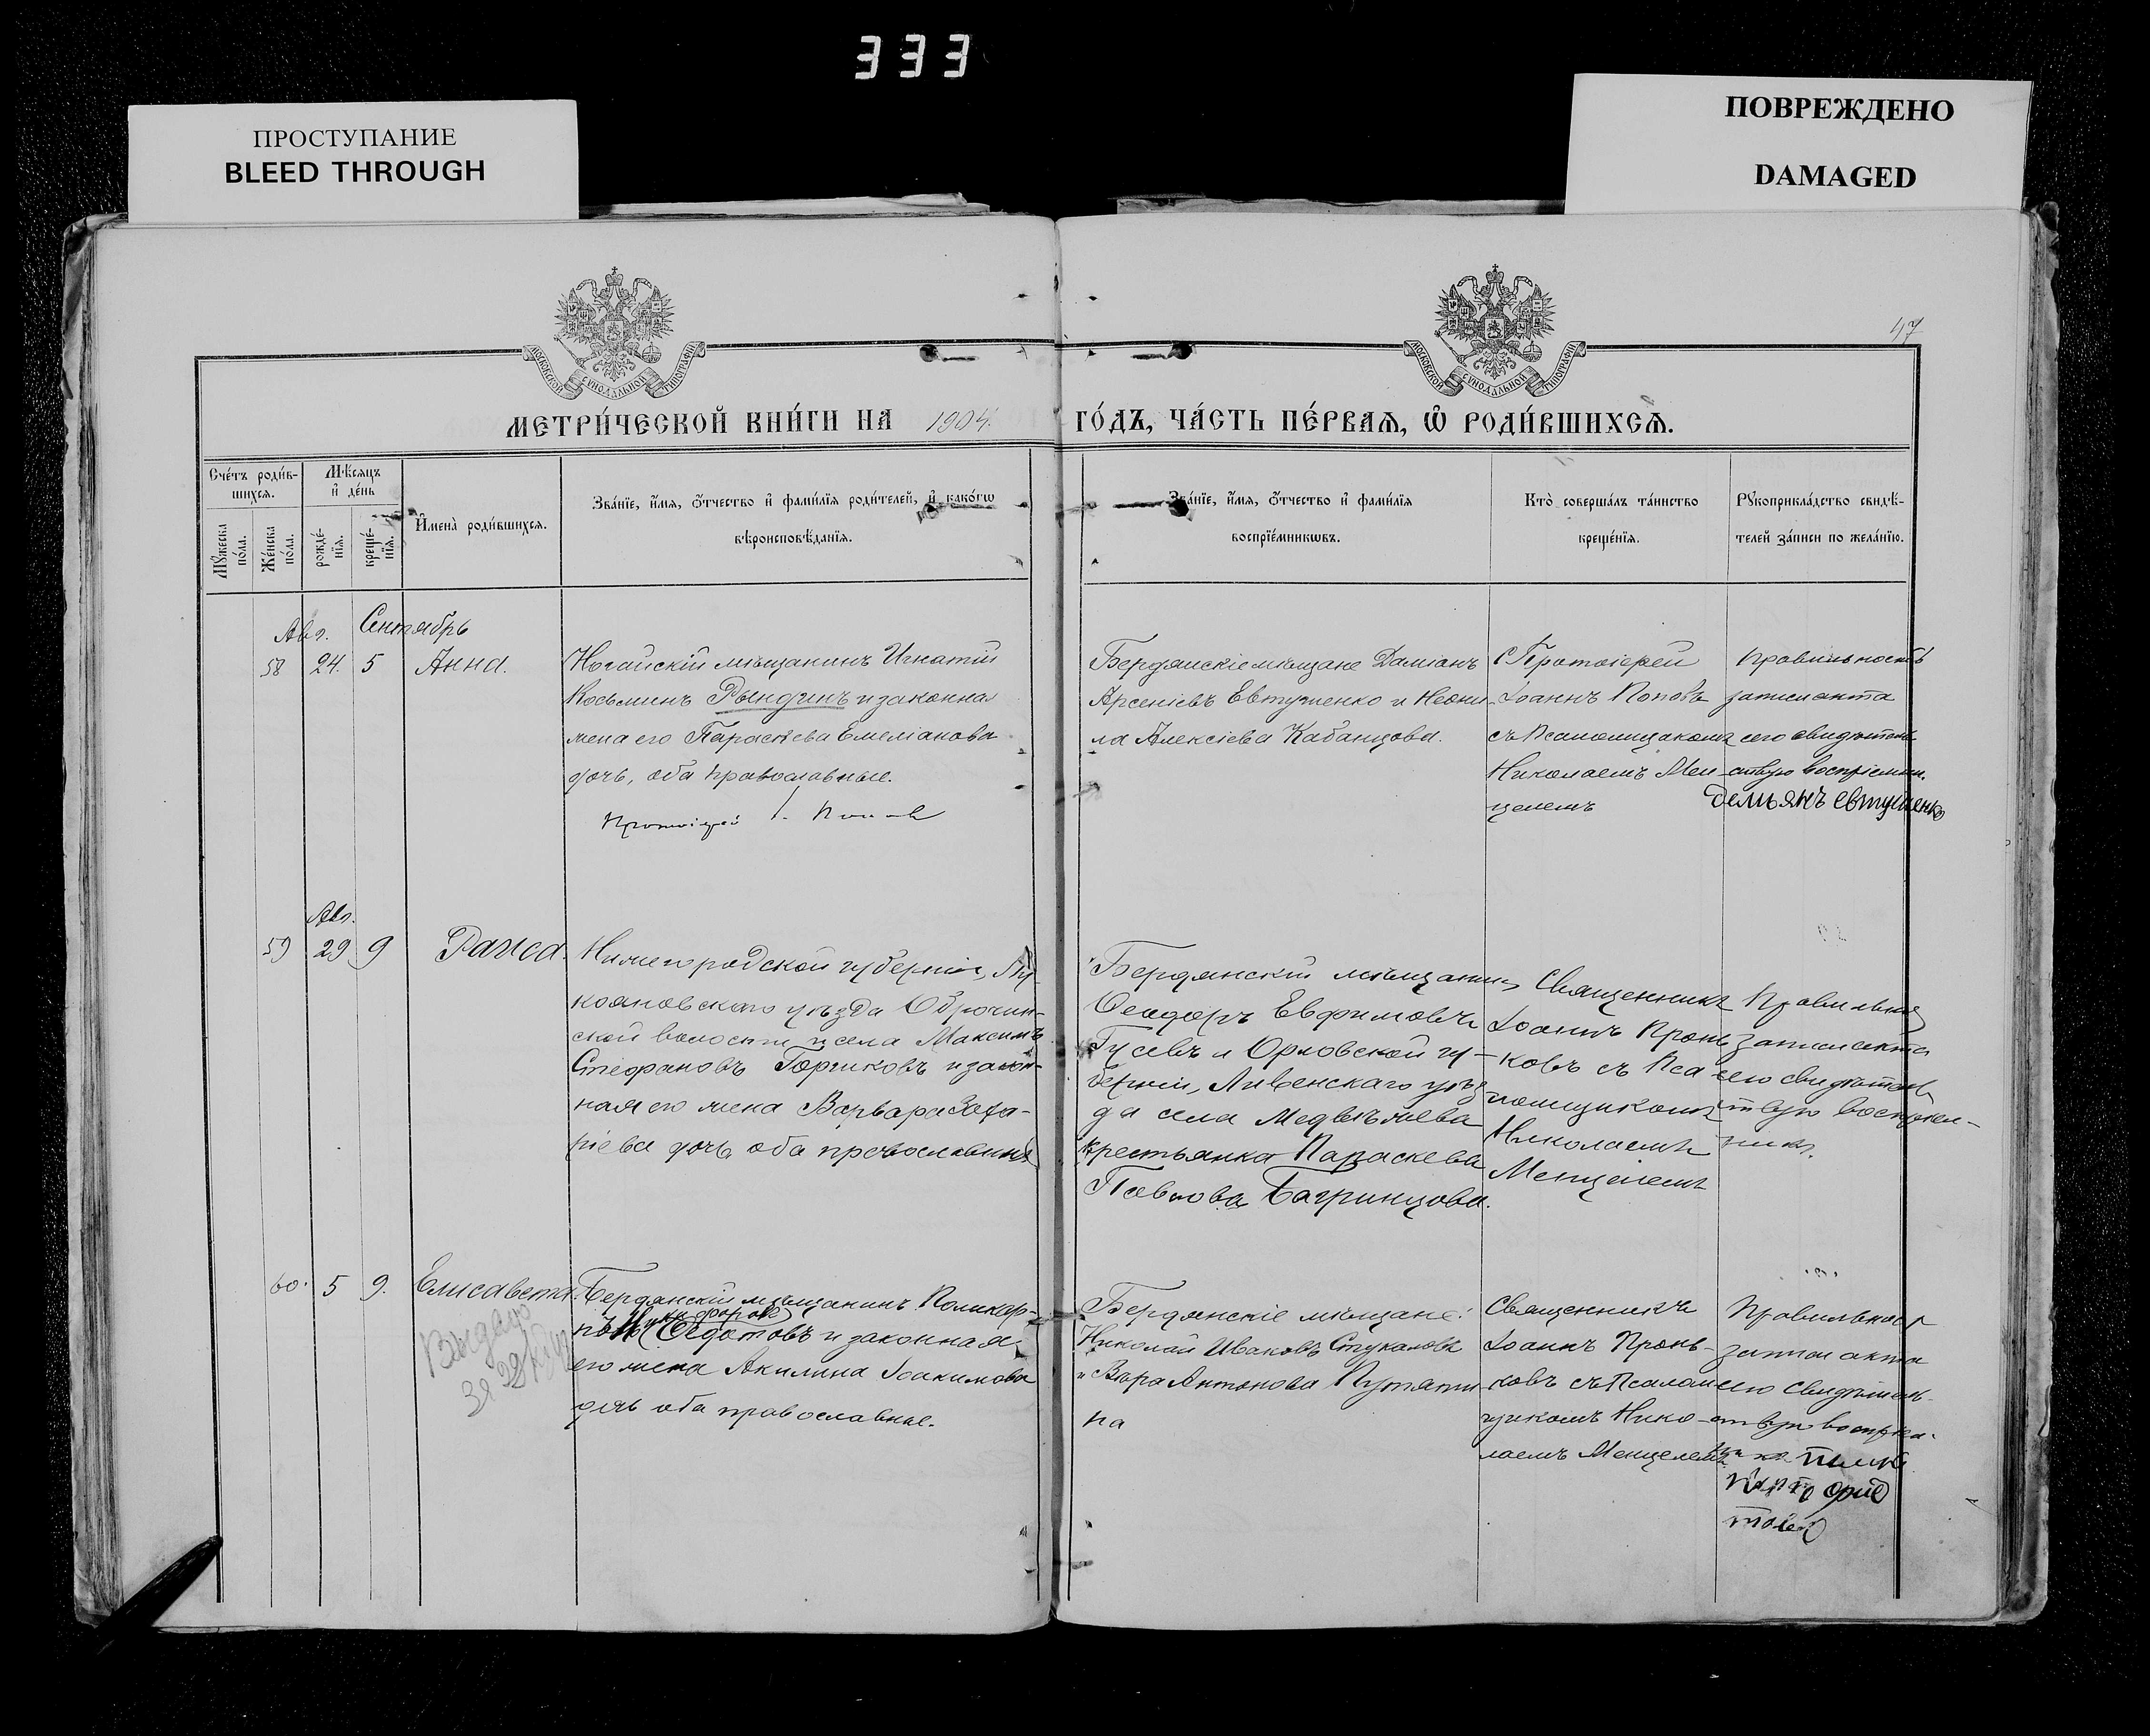 333
ПРОСТУПАНИЕ
BLEED THROUGH
ПОВРЕЖДЕНО
DAMAGED
47
МОСКОВСКОЙ СУНОДАЛЬНОЙ ТИПОГРАФІИ
МОСКОВСКОЙ СУНОДАЛЬНОЙ ТИПОГРАФІИ
МЕТРИ́ЧЕСКОЙ КНИ́ГИ НА 1904. ГО́ДЪ, ЧА́СТЬ ПЕ́РВАѦ, Ѡ҆ РОДИ́ВШИХСѦ.
Сче́тъ роди́в-
шихсѧ.
Мꙋ́жеска по́ла.
Же́нска по́ла.
Мѣ́сѧцъ
и҆ де́нь
рожде́-
нїѧ.
креще́-
нїѧ.
И҆мена̀ роди́вшихсѧ.
Зва́нїе, и҆́мѧ, ѻ҆́тчество и҆ фами́лїѧ роди́телей, и҆ како́гѡ
вѣроисповѣ́данїѧ.
Зва́нїе, и҆́мѧ, ѻ҆́тчество и҆ фами́лїѧ
воспрїе́мникѡвъ.
Кто̀ соверша́лъ та́инство
креще́нїѧ.
Рꙋкоприкла́дство свидѣ́-
телей за́писи по жела́нїю.
Авг. Сентябрь
58 24. 5 Анна.
Ногайскій мѣщанинъ Игнатій
Косьминъ Рындинъ и законная
жена его Параскева Емеліанова
дочь, оба православные.
Протоіерей І. Поповъ
Бердянскіе мѣщане Даміанъ
Арсеніевъ Евтушенко и Неони-
ла Алексіева Кабанцова.
Протоіерей
Іоаннъ Поповъ
съ Псаломщикомъ
Николаемъ Мен-
целемъ
Правильность
записи акта
сего свидѣтель-
ствую воспріемн.
Демьянъ Евтушенко
Авг.
59 29 9 Раиса.
Нижегородской губерніи, Лу-
кояновскаго уѣзда Оброчин-
ской волости и села Максимъ
Стефановъ Горшковъ и закон-
ная его жена Варвара Заха-
ріева дочь оба православные
Бердянскій мѣщанинъ
Ѳеодоръ Евфимовъ
Гусевъ и Орловской гу-
берніи, Ливенскаго уѣз
да села Медвѣжева
крестьянка Параскева
Павлова Багринцова.
Священникъ
Іоаннъ Пронь
ковъ съ Пса
ломщикомъ
Николаемъ
Менцелемъ
Правильно
записи акта
сего свидѣтель
ствую воспріем-
ники.
60. 5 9. Елисавета.
Бердянскій мѣщанинъ Поликар-
пъ Ѳедотовъ и законная
его жена Акилина Іоакимова
дочь оба православные.
Выдано
за
Бердянскіе мѣщане:
Николай Ивановъ Стукаловъ
и Вѣра Антонова Путяти
на
Священникъ
Іоаннъ Пронь-
ковъ съ Псалом
щикомъ Нико-
лаемъ Менцелемъ
Правильност
записи акта
сего свидѣтель-
ствую воспріем-